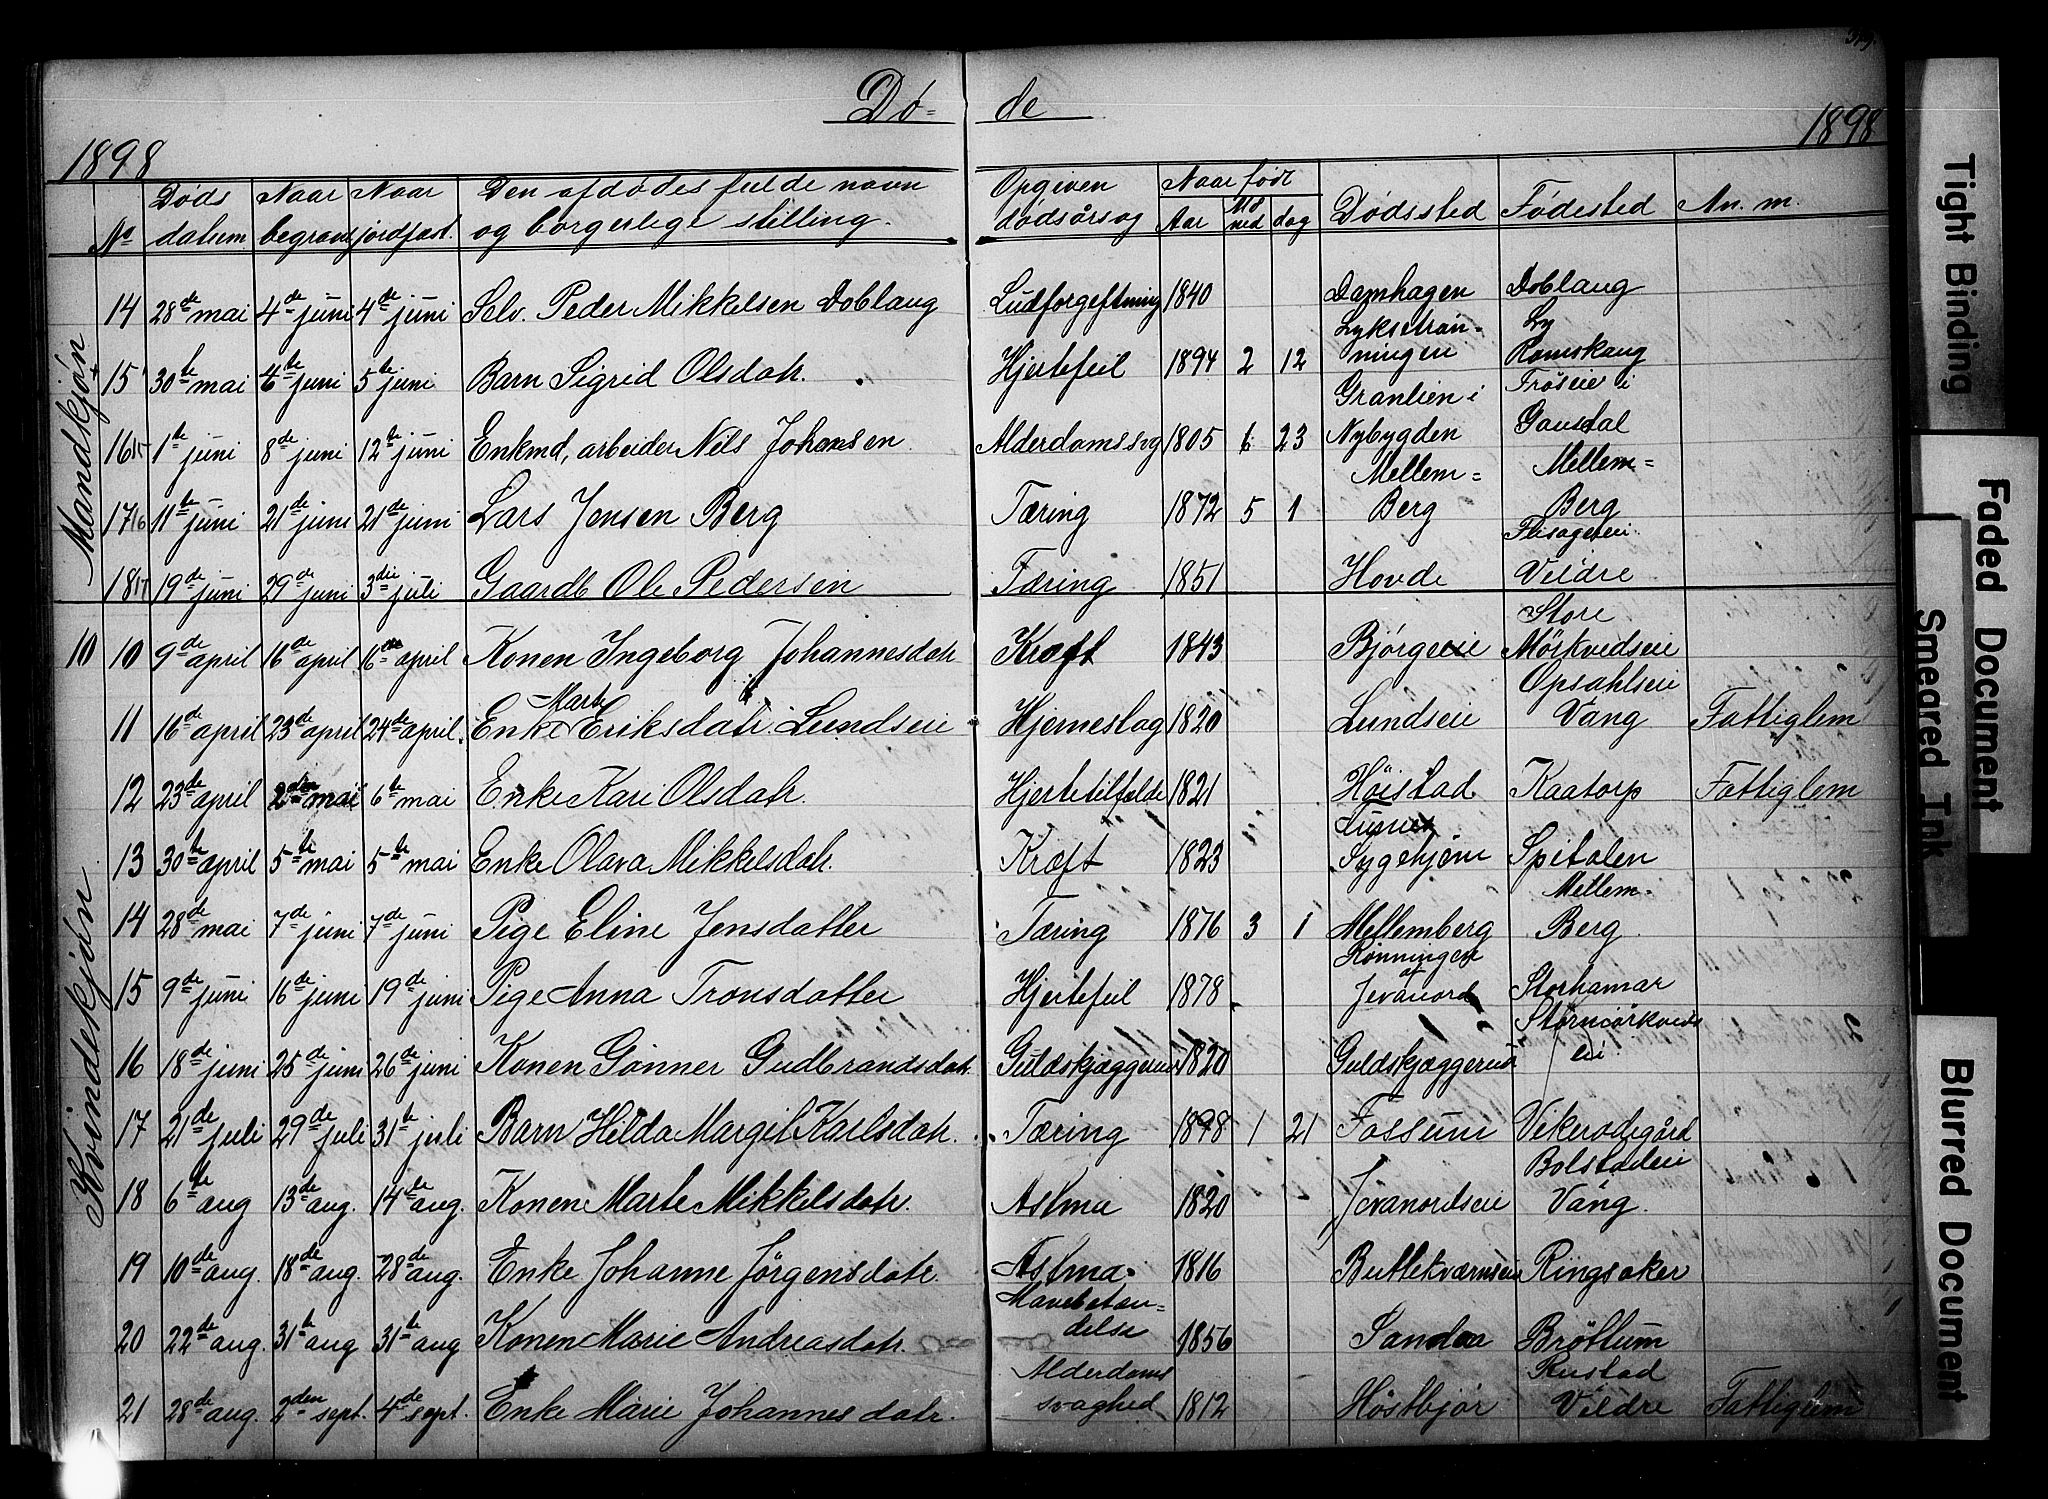 Dø= de
1898 1898
No Døds datum Naar begravet Naar jordfæst. Den afdødes fulde navn og borgerlige stilling. Opgiven dødsårsag Naar født Aar Må ned dag Dødssted Fødested An. m.
Mandkjøn
14 28de mai 4de juni 4de juni Selv. Peder Mikkelsen Doblaug Ludforgeftning 1840 Damhagen Doblaug
15 30te mai juni 5te juni Barn Sigrid Olsdatr. Hjertefeil 1894 2 12 Lykstrøn= ningen Ly Romskaug
16 1te juni 8de juni 12te juni Enkmd, arbeider Nils Johansen Alderdomssvg 1805 6 23 Granlien i Nybygden Frøseie i Gausdal
17 16 11te juni 21de juni 21de juni Lars Jensen Berg Tæring 1872 5 1 Mellem= Berg Mellem= Berg
18 17 19de juni 29de juni 3die juli Gaardb Ole Pedersen Tæring 1851 Hovde Flisageteie Veldre
Kvindekjøn
10 10 9de april 16de april 16de april Konen Ingeborg Johannesdatr Kræft 1843 Bjørgeeie Store Mörkvedseie
11 16de april 23de april 24de april. Enke Marte Eriksdatr. Lundseie Hjerneslag 1820 Lundseie Opsahlseie Vang Fattiglem
12 23de april 2den mai 6te mai Enke Kari Olsdatr. Hjertetilfælde 1821 Høistad Kaatorp Fattiglem
13 30te april 5te mai 5te mai Enke Olava Mikkelsdatr. Kræft 1823 Furnes Sygehjem Spitalen
14 28de mai 7de juni 7de juni Pige Eline Jensdatter Tæring 1876 3 1 Mellemberg Mellem= Berg
15 9de juni 16de juni 19de juni Pige Anna Tronsdatter Hjertefeil 1878 Rönningen af Jevanord Storhamar
16 18de juni 25de juni 26de juni Konen Gønner Gudbrandsdatr. 1820 Guldskjæggerud Stormörkveds eie
17 21de juli 29de juli 31te juli Barn Hilda Margit Karlsdatr. Tæring 1898 1 21 Fossum Vikerødegård
18 6te aug 13de aug. 14de aug. Konen Marte Mikkelsdatr. Astma 1820 Jevanordseie Bolstadeie Vang.
19 10de aug. 18de aug. 28de aug. Enke Johanne Jørgensdatr. Astma 1816 Buttekværnseie Ringsaker
20 22de aug. 31te aug 31te aug Konen Marie Andreasdatr. Mavebetæn= delse 1856 Brøttum
21 28de aug. 2den sept. 4de sept. Enke Marie Johannesdatr. Alderdoms svaghed 1812 Høstbjør Rustad Veldre Fattiglem
Tight Binding
Faded Document
Smeared Ink
Blurred Document